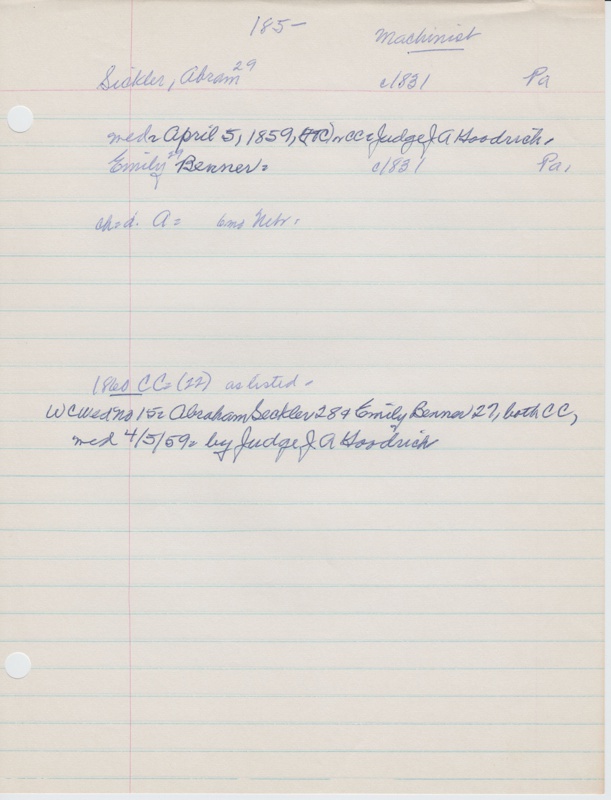 185-
Machinist
Sickler, Abram 29 c/831 Pa
med= April 5, 1859, (TC) in CC= Judge J A Goodrich.
Emily 29 Benner= c/831 Pa.
ch=d. A= 6mo Nebr.
1860 CC= (22) as listed.
WCWed no 15= Abraham Seckler 28 & Emily Benner 27, both CC,
med 4/5/59= by Judge J A Goodrich